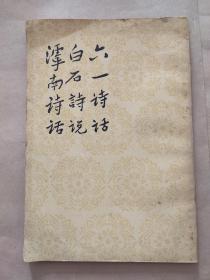 六一诗话
白石詩说
滹南詩话